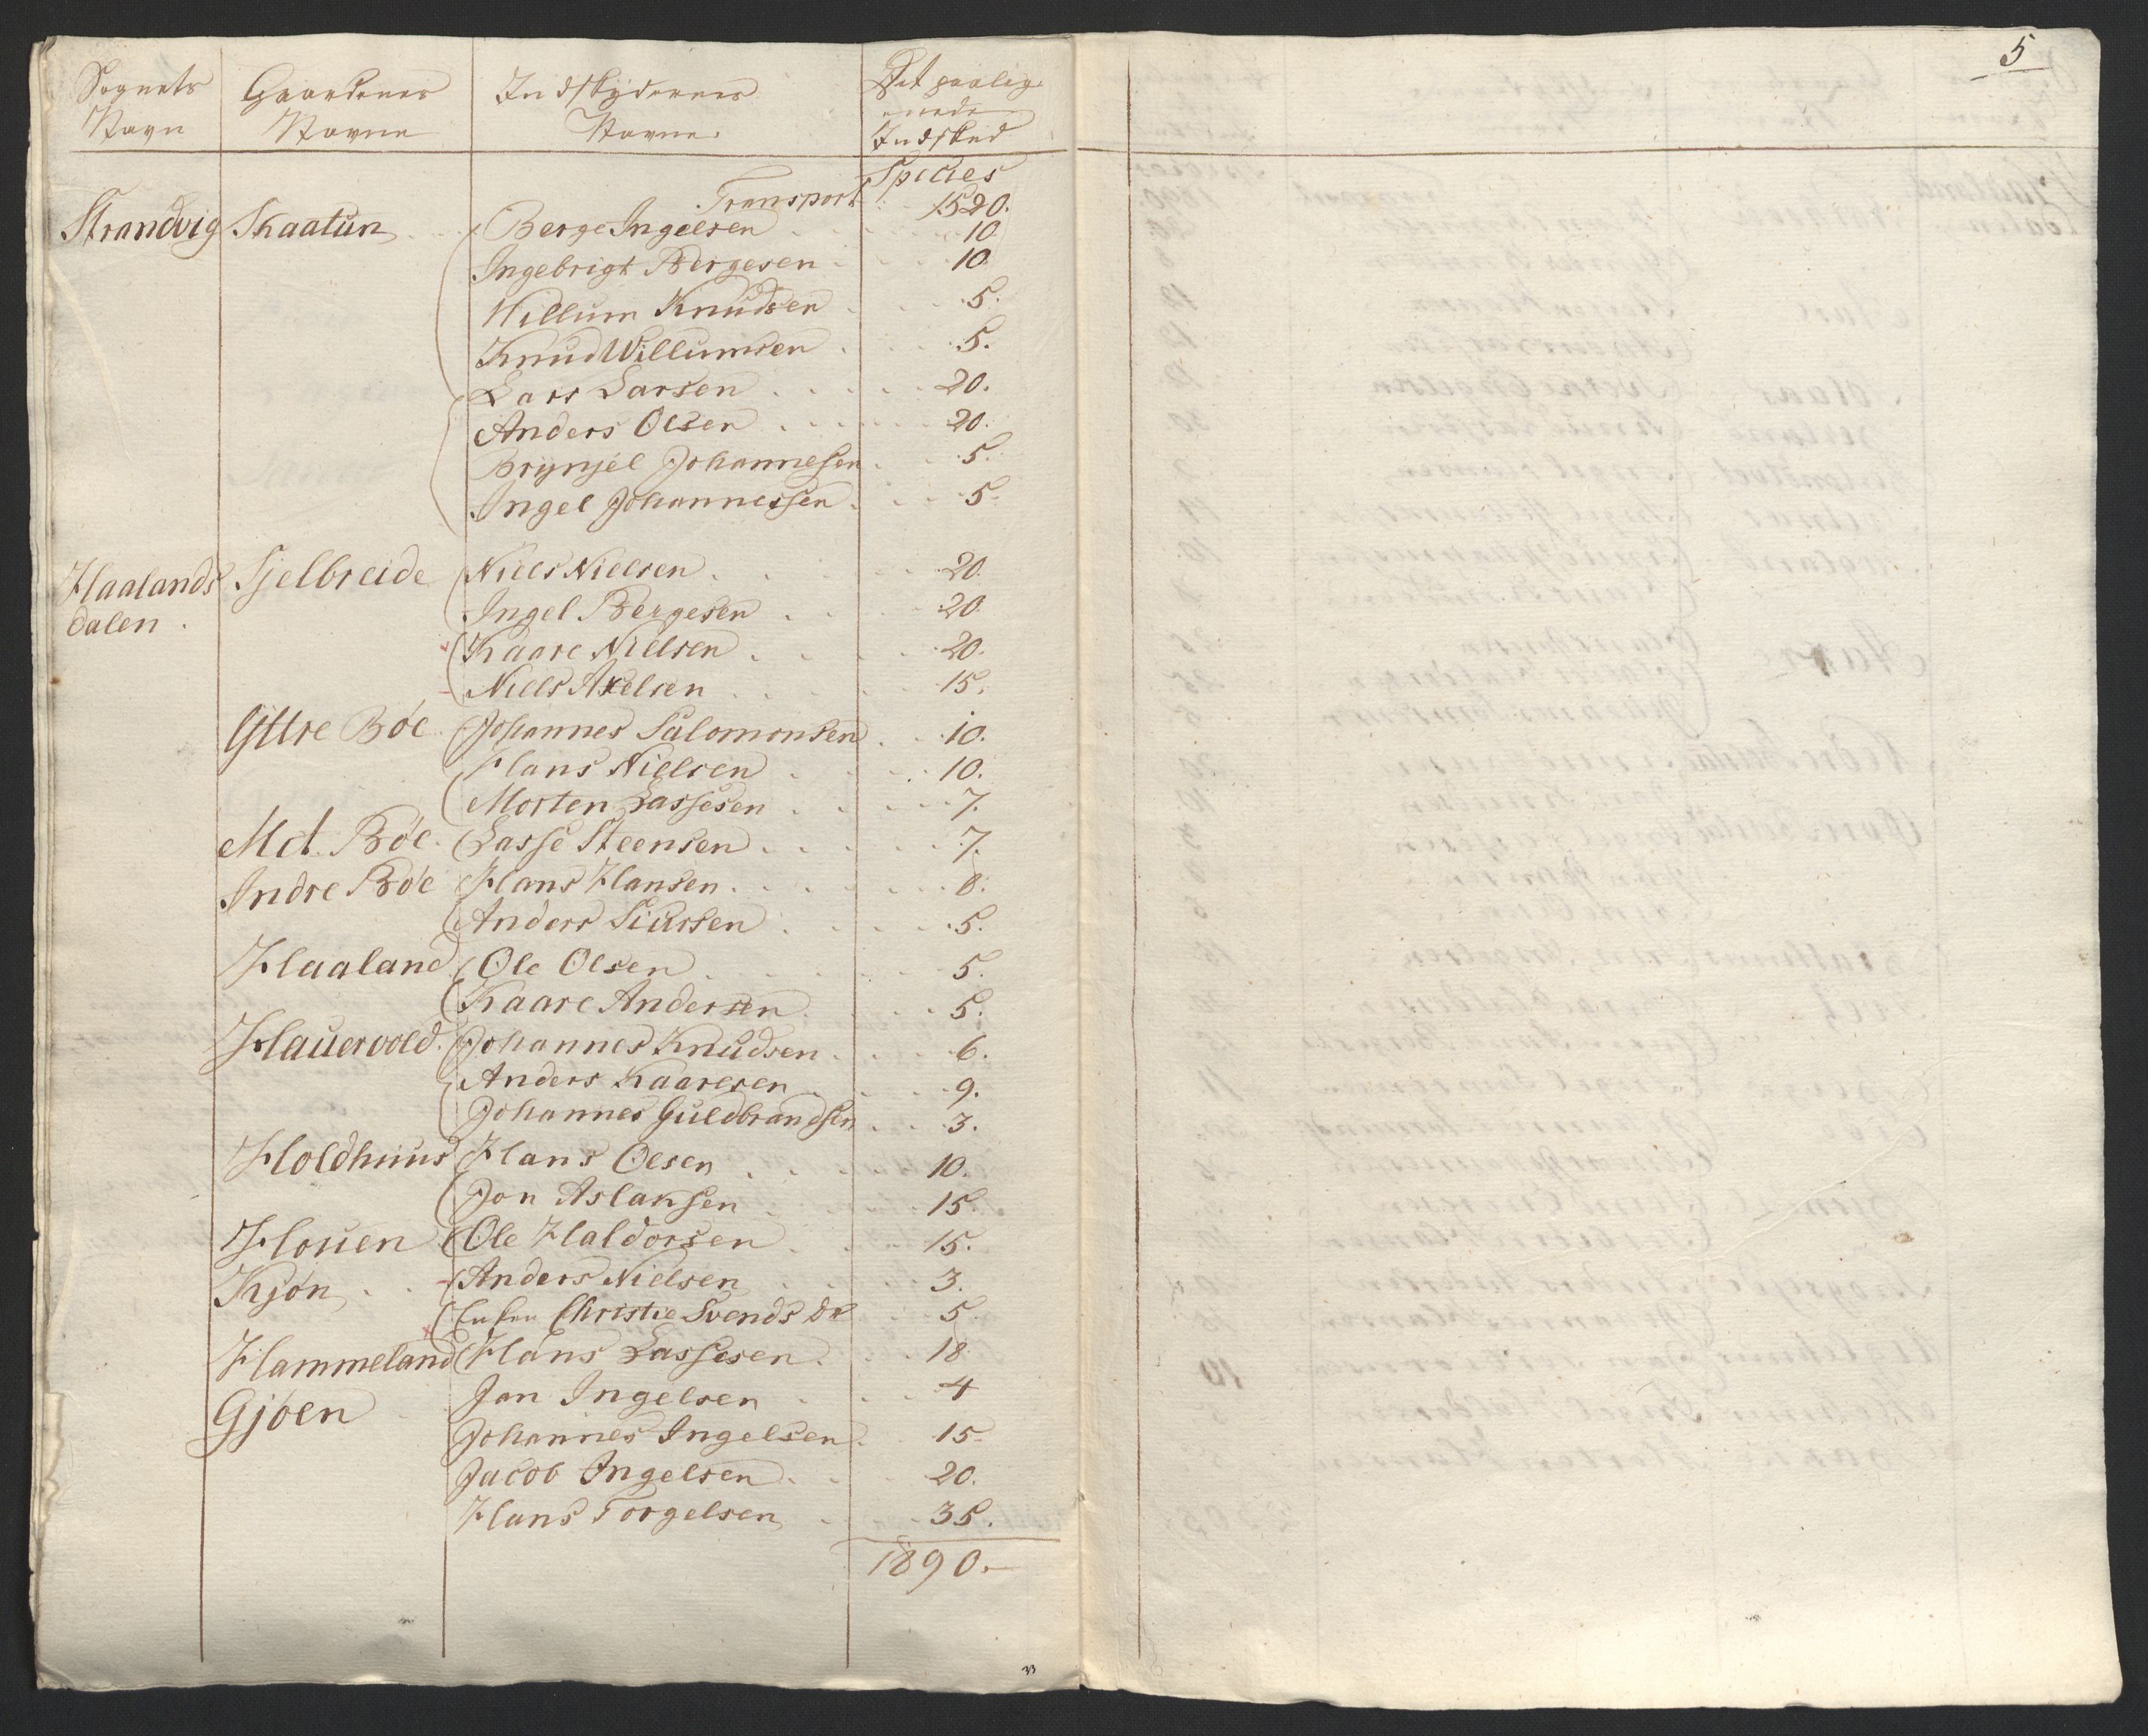 5
Sognets Gaardenes Indskydernes Det paalig-
Navn Navne Navne nede
Indskud
Species
Transport 1520.
Strandvig Skaatun Berge Ingelsen 10
Ingebrigt Bergesen 10
Willum Knudsen 5.
Knud Willumsen 5.
Lars Larsen 20.
Anders Olsen 20.
Brynjel Johannesen 5.
Ingel Johannessen 5.
Haalands Sjelbreide Niels Nielsen 20.
dalen. Ingel Bergesen 20.
Kaare Nielsen 20.
Niels Axelsen 15.
Yttre Bøe Johannes Salomonsen 10.
Hans Nielsen 10.
Morten Lassesen 7.
Md. Bøe Lasse Steensen 7.
Indre Bøe Hans Hansen 8.
Anders Siursen 5.
Haaland Ole Olsen 5.
Kaare Andersen 5.
Hauervold Johannes Knudsen 6.
Anders Kaaresen 9.
Johannes Guldbrandsen 3.
Holdhuus Hans Olsen 10.
Jon Aslaksen 15.
Houen Ole Haldorsen 15.
Kjøn Anders Nielsen 3.
Enken Christie Svends Dr 5.
Hammeland Hans Lassesen 18.
Gjøen Jan Ingelsen 4
Johannes Ingelsen 15
Jacob Ingelsen 20.
Hans Torgelsen 35.
1890.